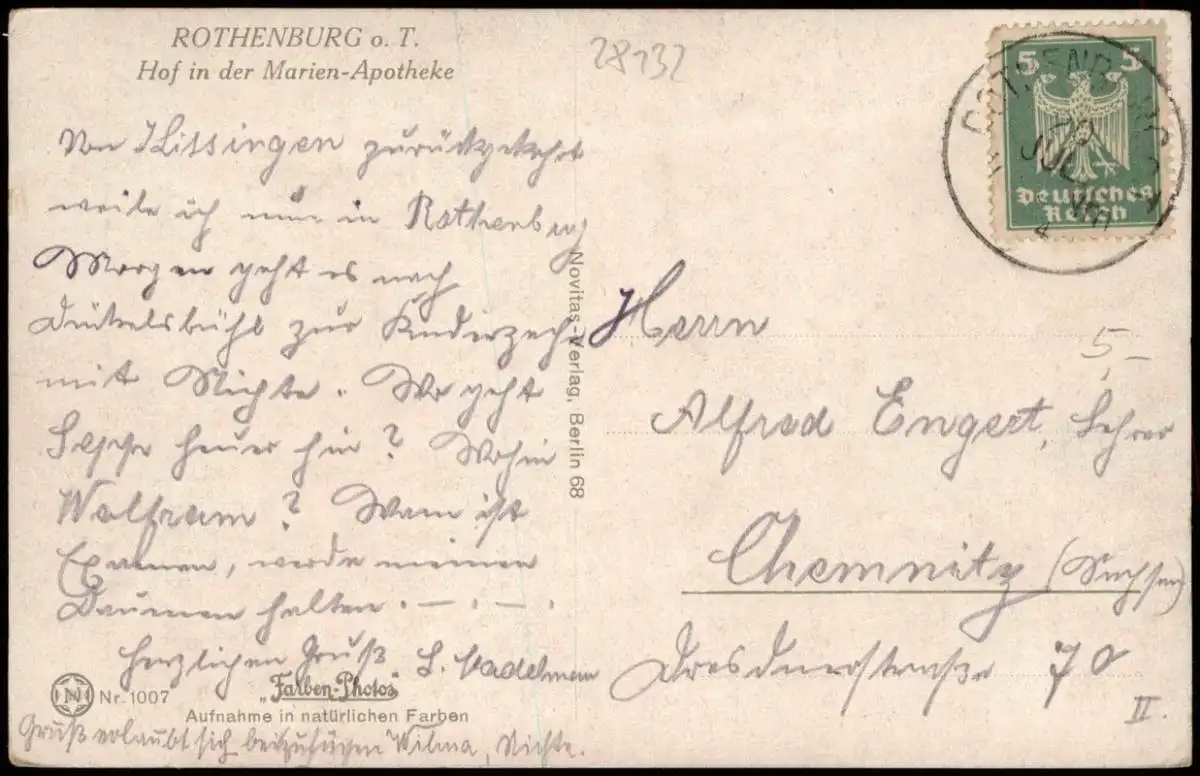 ROTHENBURG o. T.
Hof in der Marien-Apotheke
28132
5 5
Deutsches
Reich
ROTHENBURG
JUL
Von Kissingen zurückgekehrt
weile ich nun in Rothenburg
Morgen geht es nach
Dinkelsbühl zur Kinderzeche
mit Nichte. Wo geht
heuer hin? Wohin
Wolfram? Wann ist
Examen, werde meinen
Daumen halten. — . — .
Herzlichen Gruß
Novitas-Verlag, Berlin 68
Herrn
Alfred Engert, Lehrer
Chemnitz (Sachsen)
Dresdnerstraße 70
II.
5,-
N Nr. 1007
„Farben-Photos"
Aufnahme in natürlichen Farben
Gruß erlaubt sich beizufügen Wilma, Nichte.